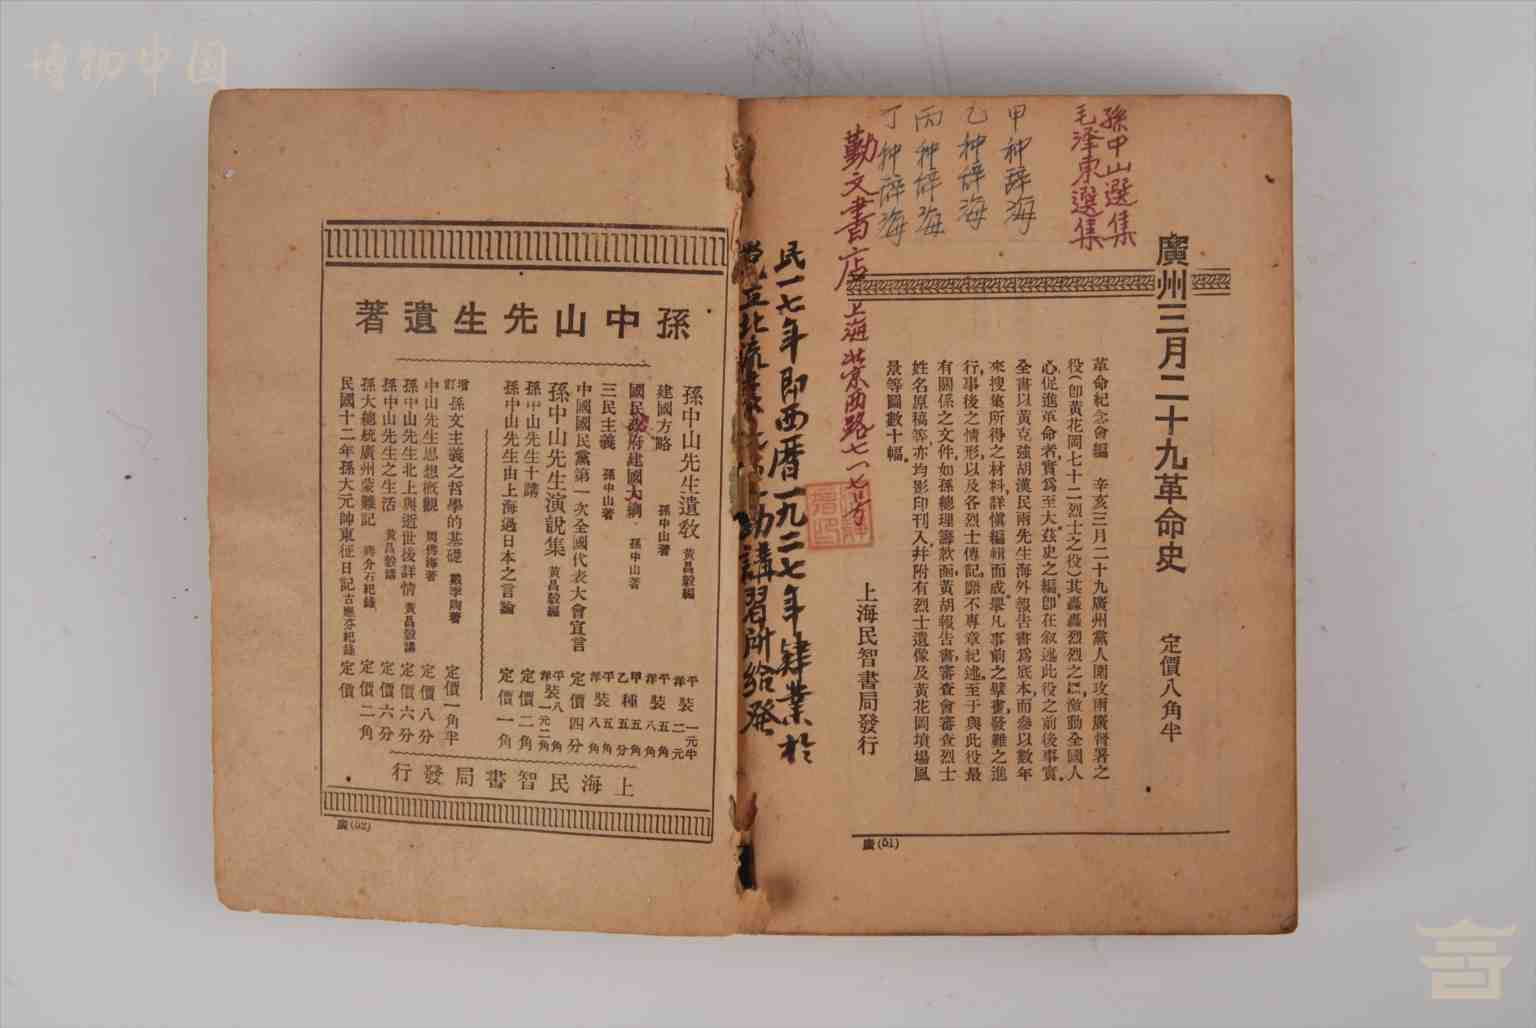 博物中国
孫中山選集
毛泽東選集
甲种辞海
乙种辞海
丙种辞海
丁种辞海
勤文書店
上海蒙西路七一七号
民一七年即西曆一九二七年肄業於
講習所給發
廣州三月二十九革命史
定價八角半
革命紀念會編　辛亥三月二十九廣州黨人圍攻兩廣督署之
役(卽黃花岡七十二烈士之役)其轟轟烈烈之
激動全國人
心,促進革命者,實爲至大.茲史之編,卽在叙述此役之前後事實.
全書以黃克強胡漢民兩先生海外報告書爲底本,而參以數年
來搜集所得之材料,詳愼編輯而成.舉凡事前之擘畫,發難之進
行,事後之情形,以及各烈士傳記,靡不專章紀述.至于與此役最
有關係之文件,如孫總理籌款函,黃胡報告書,審查會審查烈士
姓名原稿等,亦均影印刊入,幷附有烈士遺像及黃花岡墳場風
景等圖數十幅.
上海民智書局發行
廣(51)
孫中山先生遺著
孫中山先生遺敎　黃昌穀編　平裝一元半　洋裝二元
建國方略　孫中山著　平裝五角　洋裝八角
國民政府建國大綱　孫中山著　甲種五角　乙種五分
三民主義　孫中山著　平裝五角　洋裝八角
中國國民黨第一次全國代表大會宣言　定價四分
孫中山先生演說集　黃昌穀編　平裝八角　洋裝一元二角
孫中山先生十講　定價二角
孫中山先生由上海過日本之言論　定價一角
增訂孫文主義之哲學的基礎　戴季陶著　定價一角半
中山先生思想槪觀　周佛海著　定價八分
孫中山先生北上與逝世後詳情　黃昌穀講　定價六分
孫中山先生之生活　黃昌穀講　定價六分
孫大總統廣州蒙難記　蔣介石紀錄　定價二角
民國十二年孫大元帥東征日記　古應芬紀錄　定價
上海民智書局發行
廣(52)